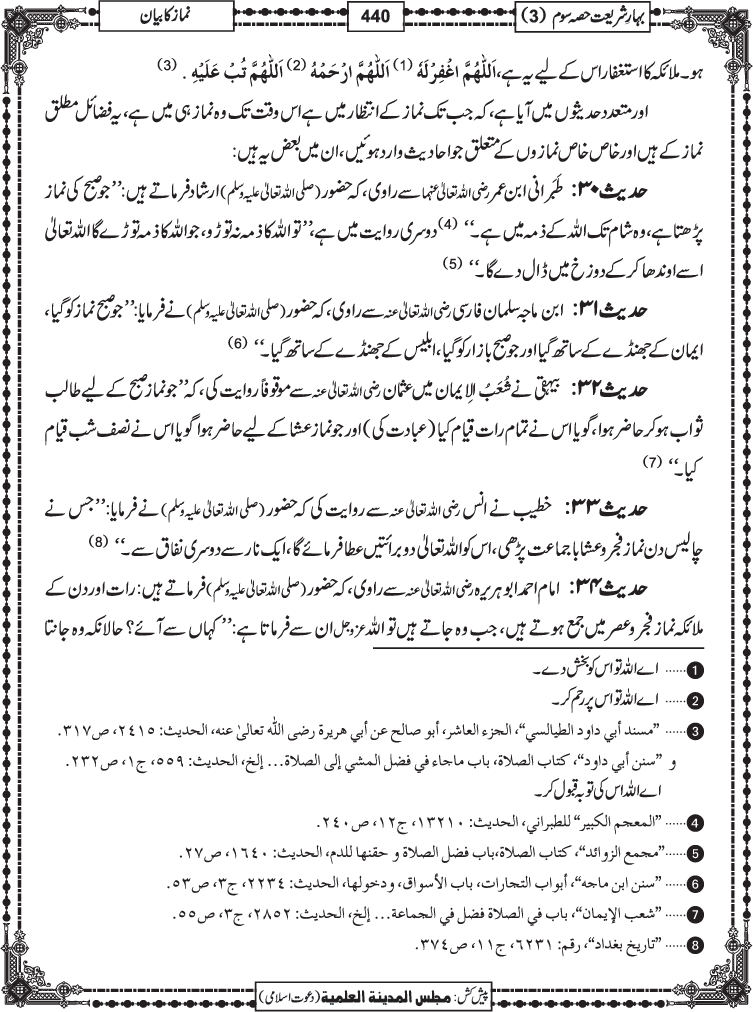 بہارِ شریعت حصہ سوم (3)
440
نماز کا بیان
ہو۔ ملائکہ کا استغفار اس کے لیے یہ ہے، اَللّٰھُمَّ اغْفِرْ لَہٗ (1) اَللّٰھُمَّ ارْحَمْہُ (2) اَللّٰھُمَّ تُبْ عَلَیْہِ . (3)
اور متعدد حدیثوں میں آیا ہے، کہ جب تک نماز کے انتظار میں ہے اس وقت تک وہ نماز ہی میں ہے، یہ فضائل مطلق
نماز کے ہیں اور خاص خاص نمازوں کے متعلق جو احادیث وارد ہوئیں، ان میں بعض یہ ہیں:
حدیث ۳۰: طَبَرانی ابن عمر رضی اللہ تعالیٰ عنہما سے راوی، کہ حضور (صلی اللہ تعالیٰ علیہ وسلم) ارشاد فرماتے ہیں: ’’جو صبح کی نماز
پڑھتا ہے، وہ شام تک اللہ کے ذمہ میں ہے۔‘‘ (4) دوسری روایت میں ہے، ’’تو اللہ کا ذمہ نہ توڑو، جو اللہ کا ذمہ توڑے گا اللہ تعالیٰ
اسے اوندھا کرکے دوزخ میں ڈال دے گا۔‘‘ (5)
حدیث ۳۱: ابن ماجہ سلمان فارسی رضی اللہ تعالیٰ عنہ سے راوی، کہ حضور (صلی اللہ تعالیٰ علیہ وسلم) نے فرمایا: ’’جو صبح نماز کو گیا،
ایمان کے جھنڈے کے ساتھ گیا اور جو صبح بازار کو گیا، ابلیس کے جھنڈے کے ساتھ گیا۔‘‘ (6)
حدیث ۳۲: بیہقی نے شُعَبُ الِایمان میں عثمان رضی اللہ تعالیٰ عنہ سے موقوفاً روایت کی، کہ ’’جو نماز صبح کے لیے طالب
ثواب ہوکر حاضر ہوا، گویا اس نے تمام رات قیام کیا (عبادت کی) اور جو نماز عشا کے لیے حاضر ہوا گویا اس نے نصف شب قیام
کیا۔‘‘ (7)
حدیث ۳۳: خطیب نے انس رضی اللہ تعالیٰ عنہ سے روایت کی کہ حضور (صلی اللہ تعالیٰ علیہ وسلم) نے فرمایا: ’’جس نے
چالیس دن نماز فجر و عشا با جماعت پڑھی، اس کو اللہ تعالیٰ دو برائتیں عطا فرمائے گا، ایک نار سے دوسری نفاق سے۔‘‘ (8)
حدیث ۳۴: امام احمد ابوہریرہ رضی اللہ تعالیٰ عنہ سے راوی، کہ حضور (صلی اللہ تعالیٰ علیہ وسلم) فرماتے ہیں: رات اور دن کے
ملائکہ نماز فجر و عصر میں جمع ہوتے ہیں، جب وہ جاتے ہیں تو اللہ عزوجل ان سے فرماتا ہے: ’’کہاں سے آئے؟ حالانکہ وہ جانتا
1 ...... اے اللہ تو اس کو بخش دے۔
2 ...... اے اللہ تو اس پر رحم کر۔
3 ...... ”مسند أبي داود الطيالسي“، الجزء العاشر، أبو صالح عن أبي هريرة رضی اللہ تعالیٰ عنه، الحديث: ٢٤١٥، ص٣١٧.
و ”سنن أبي داود“، كتاب الصلاة، باب ماجاء في فضل المشي إلى الصلاة... إلخ، الحديث: ٥٥٩، ج١، ص٢٣٢.
اے اللہ اس کی توبہ قبول کر۔
4 ...... ”المعجم الكبير“ للطبراني، الحديث: ١٣٢١٠، ج١٢، ص٢٤٠.
5 ......”مجمع الزوائد“، كتاب الصلاة،باب فضل الصلاة و حقنها للدم، الحديث: ١٦٤٠، ص٢٧.
6 ...... ”سنن ابن ماجه“، أبواب التجارات، باب الأسواق، ودخولها، الحديث: ٢٢٣٤، ج٣، ص٥٣.
7 ...... ”شعب الإيمان“، باب في الصلاة فضل في الجماعة... إلخ، الحديث: ٢٨٥٢، ج٣، ص٥٥.
8 ...... ”تاريخ بغداد“، رقم: ٦٢٣١، ج١١، ص٣٧٤.
پیش کش: مجلس المدینة العلمیة (دعوت اسلامی)